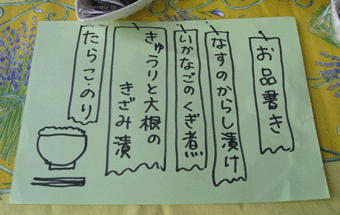 お品書き
なすのからし漬け
いかなごのくぎ煮
きゅうりと大根の
きざみ漬
たらこのり